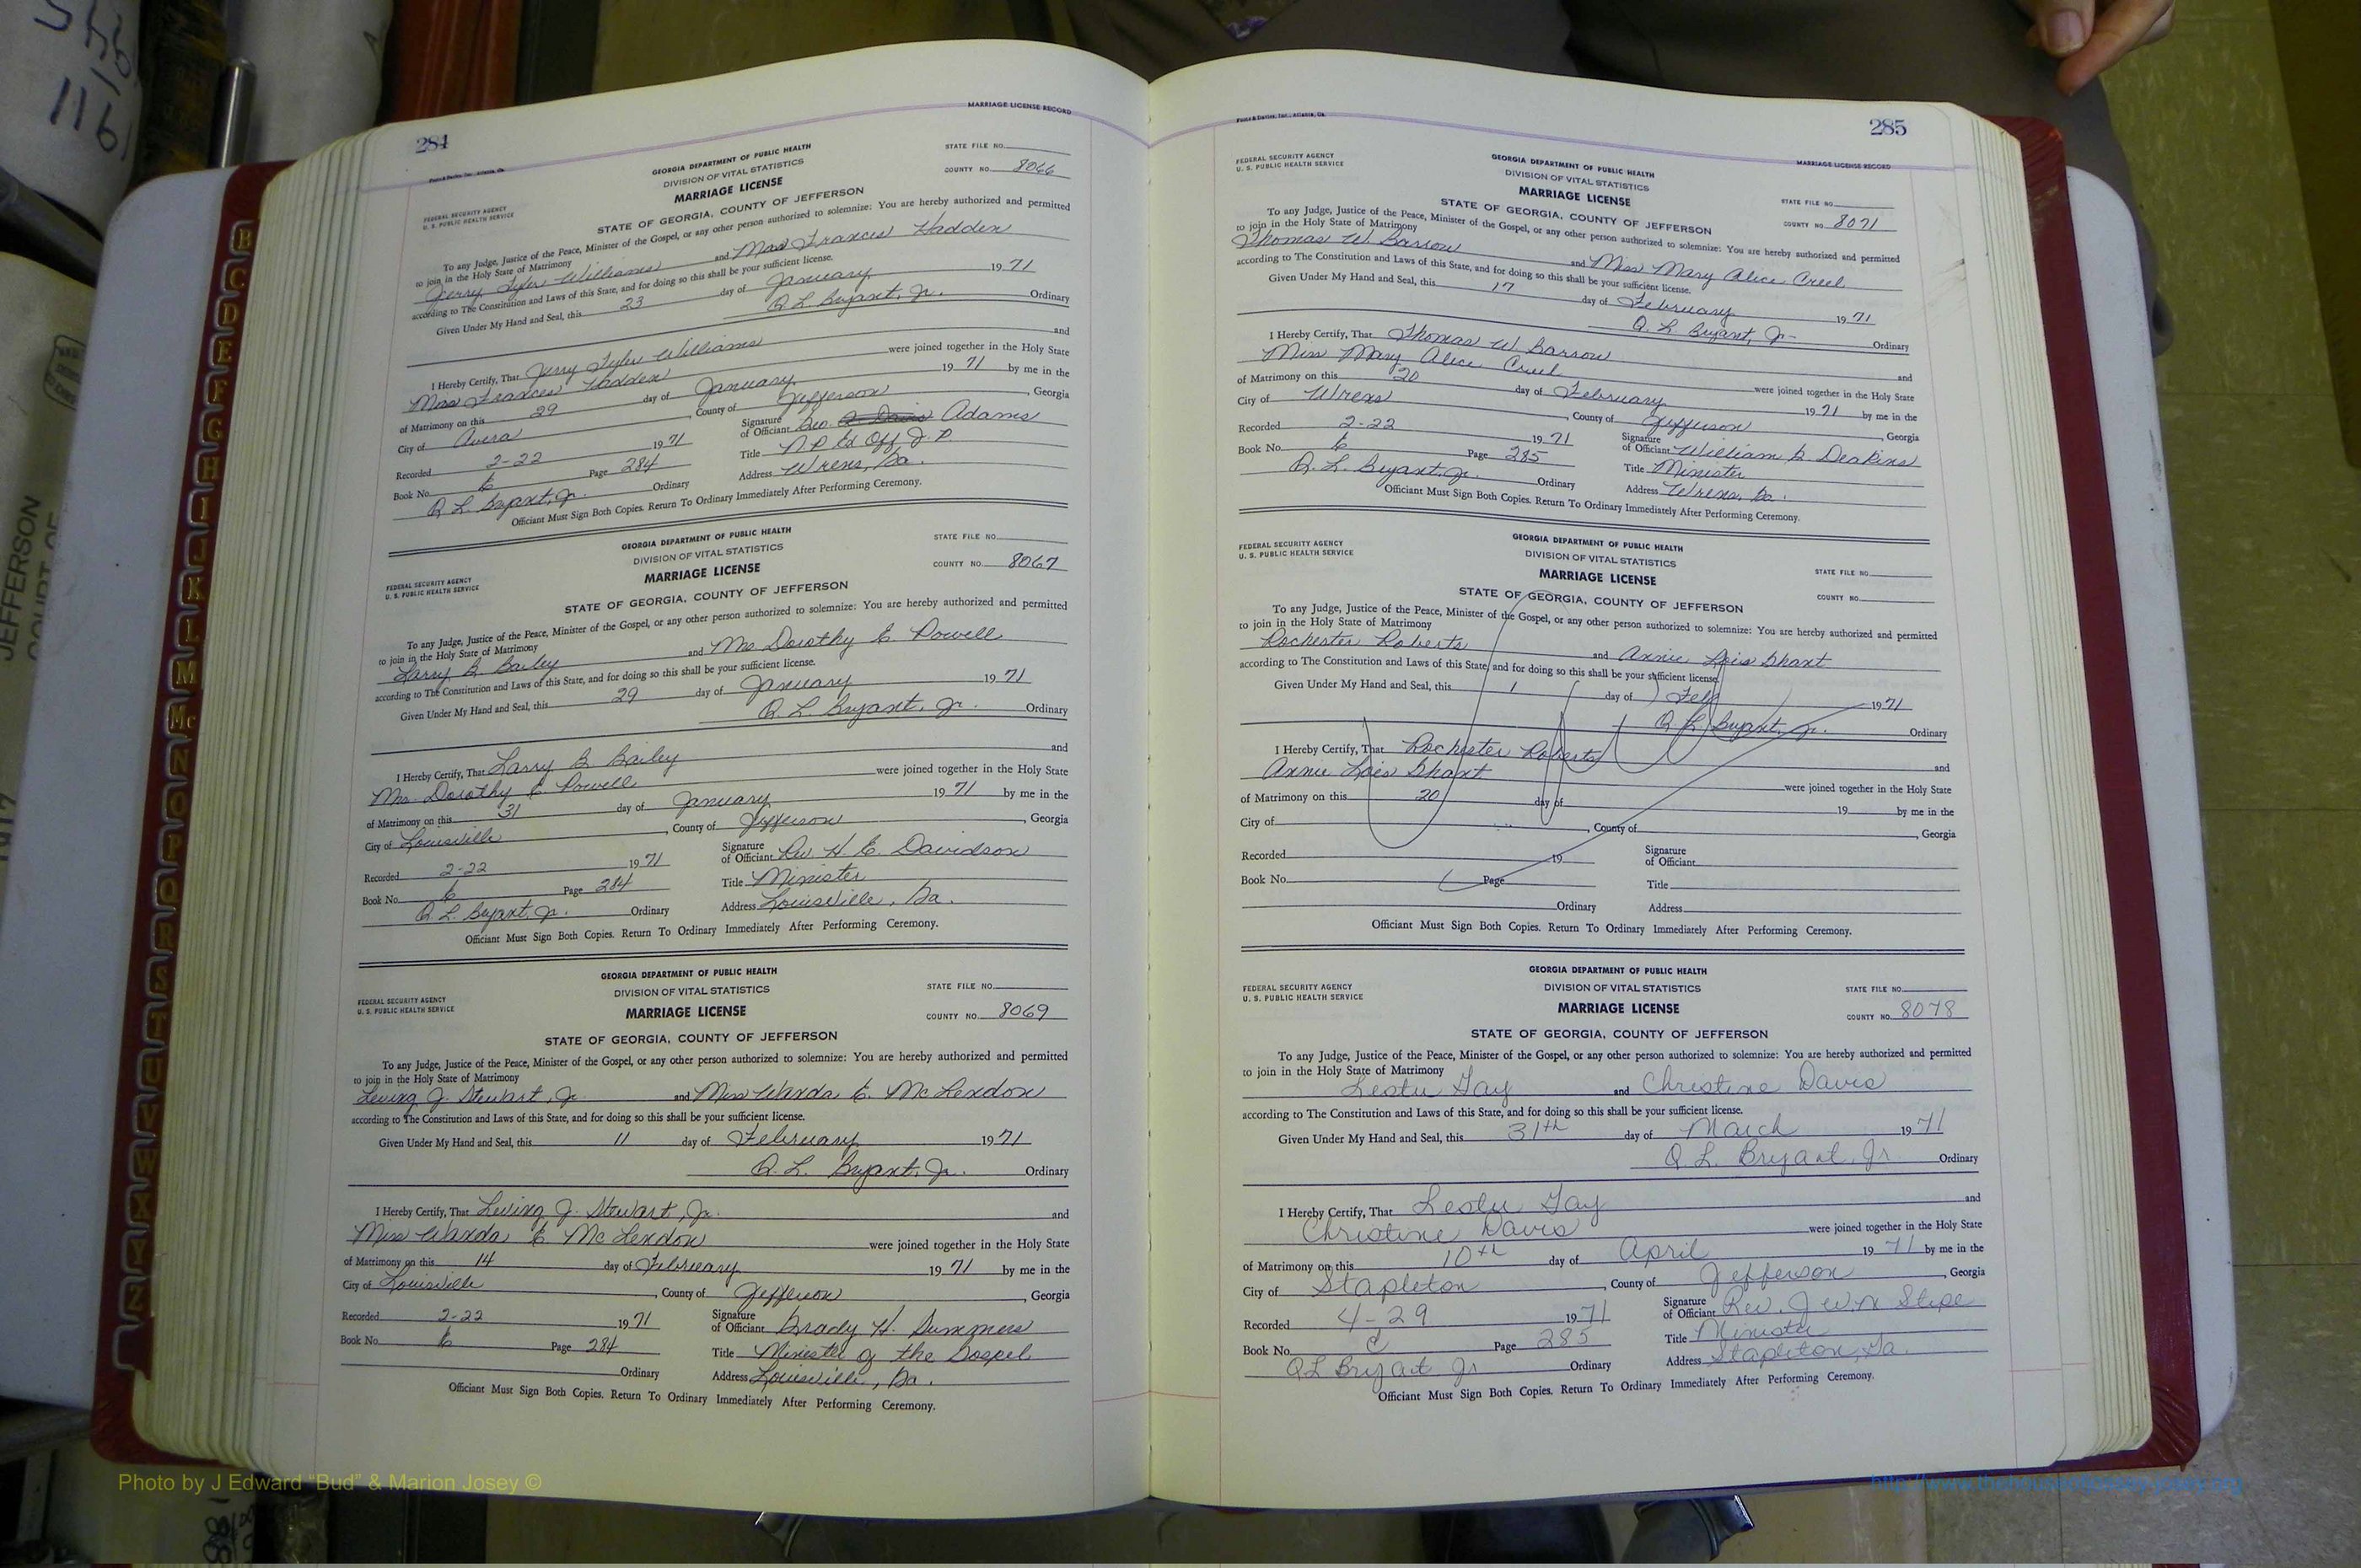 284
MARRIAGE LICENSE RECORD
Foote & Davies, Inc., Atlanta, Ga.
GEORGIA DEPARTMENT OF PUBLIC HEALTH
DIVISION OF VITAL STATISTICS
MARRIAGE LICENSE
STATE OF GEORGIA, COUNTY OF JEFFERSON
STATE FILE NO.
COUNTY NO. 8066
FEDERAL SECURITY AGENCY
U. S. PUBLIC HEALTH SERVICE
To any Judge, Justice of the Peace, Minister of the Gospel, or any other person authorized to solemnize: You are hereby authorized and permitted
to join in the Holy State of Matrimony
Jerry Tyler Williams and Miss Frances Hadden
according to The Constitution and Laws of this State, and for doing so this shall be your sufficient license.
Given Under My Hand and Seal, this 23 day of January 1971
Q. L. Bryant, Jr. Ordinary
I Hereby Certify, That Jerry Tyler Williams and
Miss Frances Hadden were joined together in the Holy State
of Matrimony on this 29 day of January 1971 by me in the
City of Avera, County of Jefferson, Georgia
Recorded 2-22 1971 Signature of Officiant Geo. Adams
Book No. 6 Page 284 Title N.P. Ex Off. J.P.
Q. L. Bryant, Jr. Ordinary Address Wrens, Ga.
Officiant Must Sign Both Copies. Return To Ordinary Immediately After Performing Ceremony.
GEORGIA DEPARTMENT OF PUBLIC HEALTH
DIVISION OF VITAL STATISTICS
MARRIAGE LICENSE
STATE OF GEORGIA, COUNTY OF JEFFERSON
STATE FILE NO.
COUNTY NO. 8067
FEDERAL SECURITY AGENCY
U. S. PUBLIC HEALTH SERVICE
To any Judge, Justice of the Peace, Minister of the Gospel, or any other person authorized to solemnize: You are hereby authorized and permitted
to join in the Holy State of Matrimony
Larry B. Bailey and Mrs. Dorothy E. Powell
according to The Constitution and Laws of this State, and for doing so this shall be your sufficient license.
Given Under My Hand and Seal, this 29 day of January 1971
Q. L. Bryant, Jr. Ordinary
I Hereby Certify, That Larry B Bailey and
Mrs. Dorothy E. Powell were joined together in the Holy State
of Matrimony on this 31 day of January 1971 by me in the
City of Louisville, County of Jefferson, Georgia
Recorded 2-22 1971 Signature of Officiant Rev H E. Davidson
Book No. 6 Page 284 Title Minister
Q. L. Bryant, Jr. Ordinary Address Louisville, Ga.
Officiant Must Sign Both Copies. Return To Ordinary Immediately After Performing Ceremony.
GEORGIA DEPARTMENT OF PUBLIC HEALTH
DIVISION OF VITAL STATISTICS
MARRIAGE LICENSE
STATE OF GEORGIA, COUNTY OF JEFFERSON
STATE FILE NO.
COUNTY NO. 8069
FEDERAL SECURITY AGENCY
U. S. PUBLIC HEALTH SERVICE
To any Judge, Justice of the Peace, Minister of the Gospel, or any other person authorized to solemnize: You are hereby authorized and permitted
to join in the Holy State of Matrimony
J. Stewart, Jr. and Miss Wanda E. McLendon
according to The Constitution and Laws of this State, and for doing so this shall be your sufficient license.
Given Under My Hand and Seal, this 11 day of February 1971
Q. L. Bryant, Jr. Ordinary
I Hereby Certify, That J. Stewart, Jr. and
Miss Wanda E. McLendon were joined together in the Holy State
of Matrimony on this 14 day of February 1971 by me in the
City of Louisville, County of Jefferson, Georgia
Recorded 2-22 1971 Signature of Officiant Grady H. Summers
Book No. 6 Page 284 Title Minister of the Gospel
Ordinary Address Louisville, Ga.
Officiant Must Sign Both Copies. Return To Ordinary Immediately After Performing Ceremony.
285
Foote & Davies, Inc., Atlanta, Ga.
MARRIAGE LICENSE RECORD
FEDERAL SECURITY AGENCY
U. S. PUBLIC HEALTH SERVICE
GEORGIA DEPARTMENT OF PUBLIC HEALTH
DIVISION OF VITAL STATISTICS
MARRIAGE LICENSE
STATE OF GEORGIA, COUNTY OF JEFFERSON
STATE FILE NO.
COUNTY NO. 8071
To any Judge, Justice of the Peace, Minister of the Gospel, or any other person authorized to solemnize: You are hereby authorized and permitted
to join in the Holy State of Matrimony
Thomas W. Barrow and Miss Mary Alice Creel
according to The Constitution and Laws of this State, and for doing so this shall be your sufficient license.
Given Under My Hand and Seal, this 17 day of February 1971
Q. L. Bryant, Jr. Ordinary
I Hereby Certify, That Thomas W. Barrow and
Miss Mary Alice Creel were joined together in the Holy State
of Matrimony on this 20 day of February 1971 by me in the
City of Wrens, County of Jefferson, Georgia
Recorded 2-22 1971 Signature of Officiant William G. Deakins
Book No. 6 Page 285 Title Minister
Q. L. Bryant, Jr. Ordinary Address Wrens, Ga.
Officiant Must Sign Both Copies. Return To Ordinary Immediately After Performing Ceremony.
FEDERAL SECURITY AGENCY
U. S. PUBLIC HEALTH SERVICE
GEORGIA DEPARTMENT OF PUBLIC HEALTH
DIVISION OF VITAL STATISTICS
MARRIAGE LICENSE
STATE OF GEORGIA, COUNTY OF JEFFERSON
STATE FILE NO.
COUNTY NO.
To any Judge, Justice of the Peace, Minister of the Gospel, or any other person authorized to solemnize: You are hereby authorized and permitted
to join in the Holy State of Matrimony
Rochester Roberts and Annie Lois Grant
according to The Constitution and Laws of this State, and for doing so this shall be your sufficient license.
Given Under My Hand and Seal, this 1 day of Feb 1971
Q. L. Bryant, Jr. Ordinary
I Hereby Certify, That Rochester Roberts and
Annie Lois Grant were joined together in the Holy State
of Matrimony on this 20 day of 19 by me in the
City of , County of , Georgia
Recorded 19 Signature of Officiant
Book No. Page Title
Ordinary Address
Officiant Must Sign Both Copies. Return To Ordinary Immediately After Performing Ceremony.
Void
FEDERAL SECURITY AGENCY
U. S. PUBLIC HEALTH SERVICE
GEORGIA DEPARTMENT OF PUBLIC HEALTH
DIVISION OF VITAL STATISTICS
MARRIAGE LICENSE
STATE OF GEORGIA, COUNTY OF JEFFERSON
STATE FILE NO.
COUNTY NO. 8078
To any Judge, Justice of the Peace, Minister of the Gospel, or any other person authorized to solemnize: You are hereby authorized and permitted
to join in the Holy State of Matrimony
Lester Gay and Christine Davis
according to The Constitution and Laws of this State, and for doing so this shall be your sufficient license.
Given Under My Hand and Seal, this 31th day of March 1971
Q L. Bryant, Jr. Ordinary
I Hereby Certify, That Lester Gay and
Christine Davis were joined together in the Holy State
of Matrimony on this 10th day of April 1971 by me in the
City of Stapleton, County of Jefferson, Georgia
Recorded 4-29 1971 Signature of Officiant Rev. J
Book No. Page 285 Title Minister
Q L Bryant Jr Ordinary Address Stapleton, Ga.
Officiant Must Sign Both Copies. Return To Ordinary Immediately After Performing Ceremony.
B
C
D
E
F
G
H
I
J
K
L
M
Mc
N
O
P
Q
R
S
T
U
V
W
X
Y
Z
JEFFERSON
Photo by J Edward “Bud” & Marion Josey ©